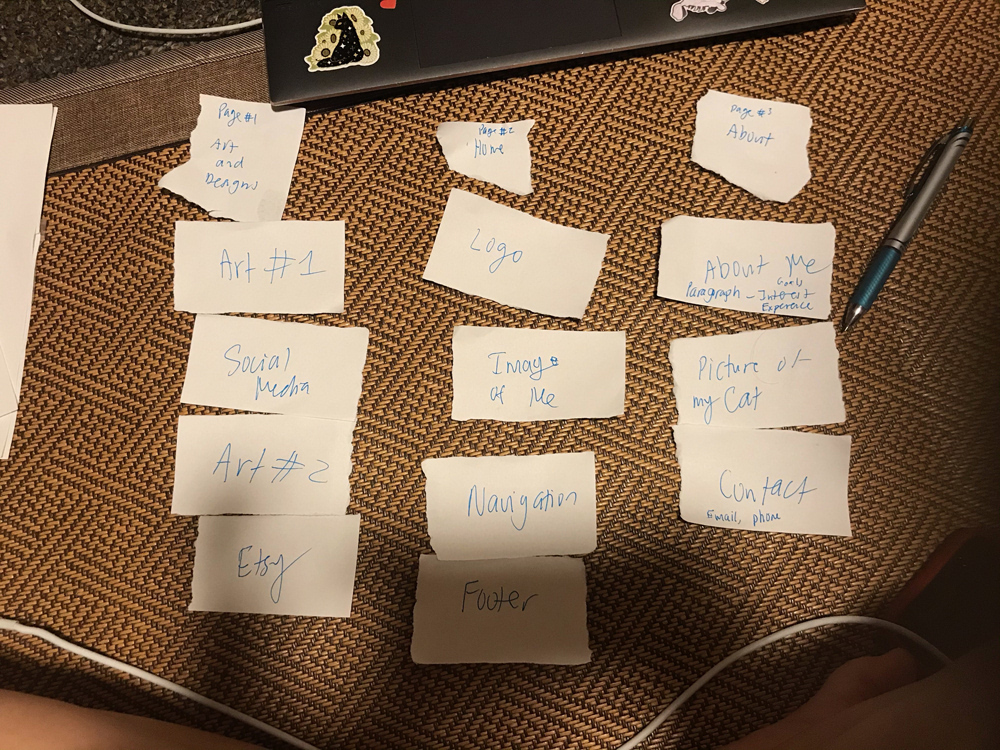 Page #1
Art
and
Designs
Art #1
Social
Media
Art #2
Etsy
Page #2
Home
Logo
Image
of Me
Navigation
Footer
Page #3
About
About Me
Goals
Paragraph - Interest
Experence
Picture of
my Cat
Contact
Email, phone